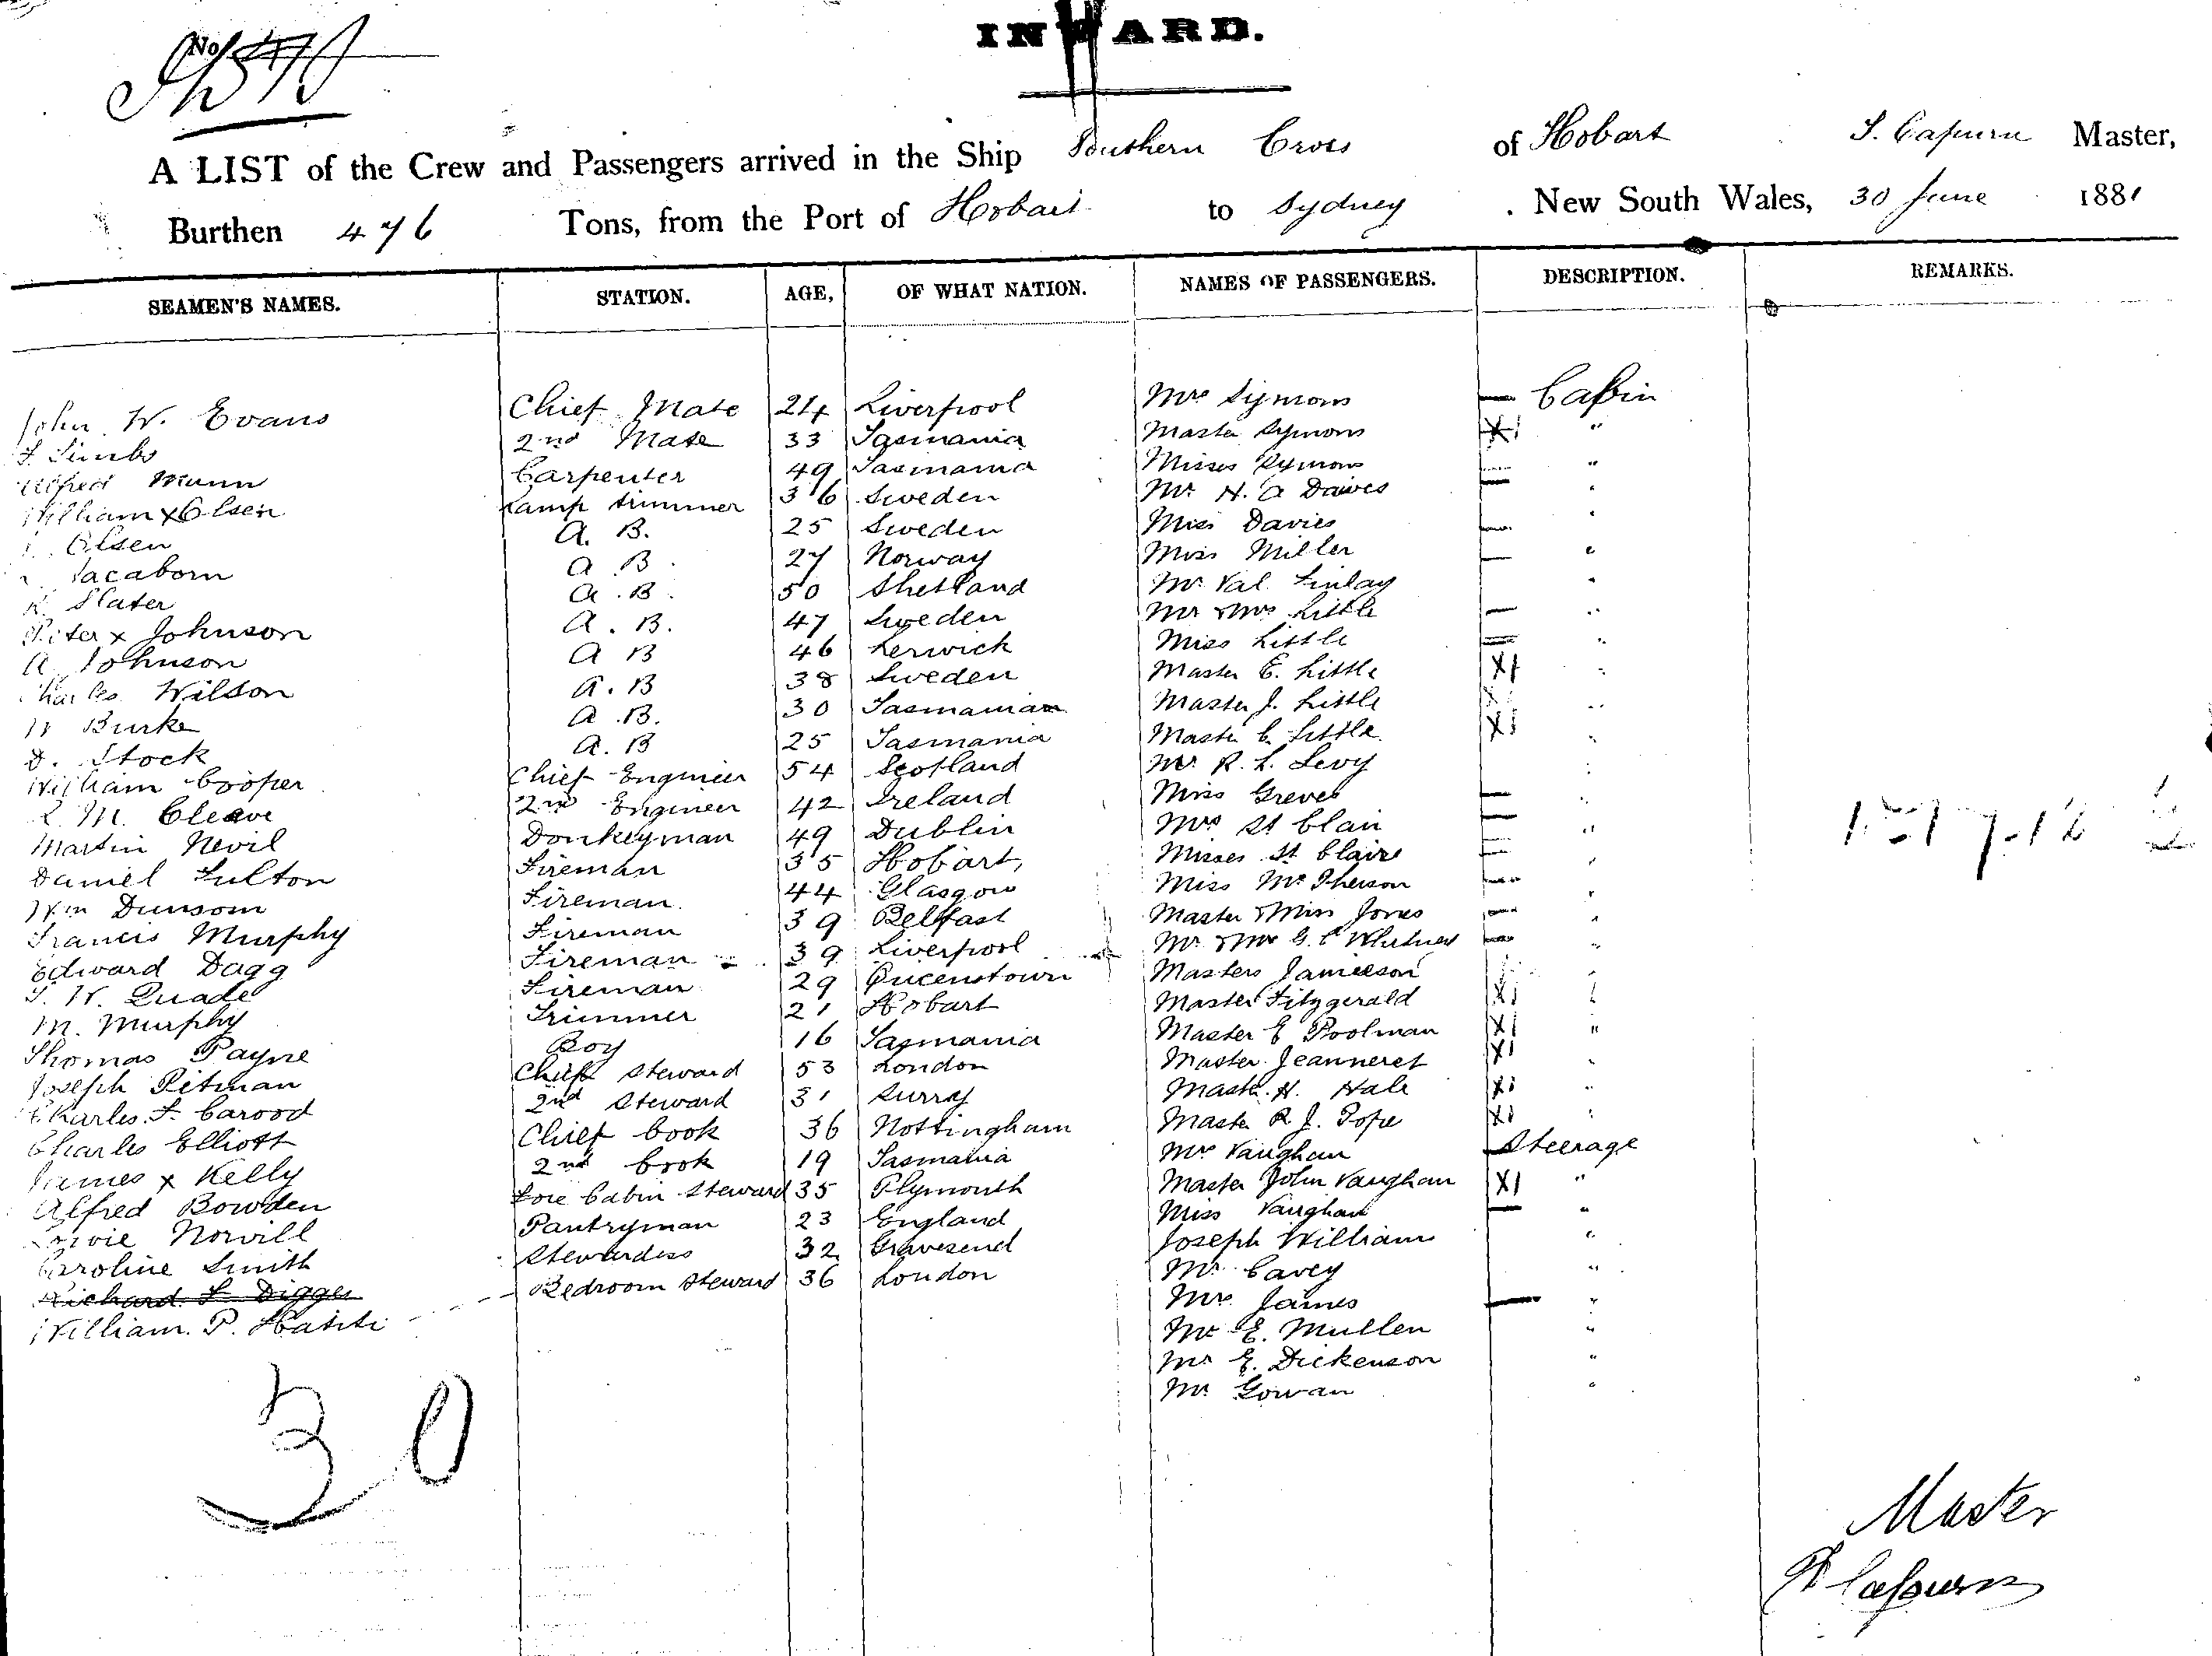 No
INWARD.
A LIST of the Crew and Passengers arrived in the Ship Southern Cross of Hobart Master,
Burthen 476 Tons, from the Port of Hobart to Sydney . New South Wales, 30 June 1881
SEAMEN'S NAMES. STATION. AGE, OF WHAT NATION. NAMES OF PASSENGERS. DESCRIPTION. REMARKS.
John W. Evans Chief Mate 24 Liverpool Mrs Symons — Cabin
2nd Mate 33 Tasmania Master Symons X1 "
Alfred Mann Carpenter 49 Tasmania Misses Symons "
William x Olsen Lamp trimmer 36 Sweden Mr H. A Davies — "
Olsen A. B. 25 Sweden Miss Davies — "
A B 27 Norway Miss Miller — "
Slater A. B. 50 Shetland Mr Val Finlay "
Peter x Johnson A. B. 47 Sweden Mr & Mrs Little — "
A Johnson A B 46 Lerwick Miss Little "
Charles Wilson A. B 38 Sweden Master E. Little X1 "
W Burke A. B. 30 Tasmanian Master J. Little X "
D. Stock A. B 25 Tasmania Master C. Little X1 "
William Cooper Chief Engineer 54 Scotland Mr R. L. Levy "
M. Cleave 2nd Engineer 42 Ireland Miss Greves — "
Martin Nevil Donkeyman 49 Dublin Mrs St Clair — "
Daniel Fulton Fireman 35 Hobart, Misses St Claire "
Wm Dunsom Fireman. 44 Glasgow Miss McPherson — "
Francis Murphy Fireman 39 Belfast Master & Miss Jones — "
Edward Dagg Fireman 39 Liverpool Mr & Mrs G. C — "
T. W. Quade Fireman 29 Queenstown Masters Jamieson "
M. Murphy Trimmer 21 Hobart Master Fitzgerald X1 "
Thomas Payne Boy 16 Tasmania Master E Poolman X1 "
Joseph Pitman Chief Steward 53 London Master Jeanneret X1 "
Charles F. Carood 2nd Steward 31 Surry Master H. Hale X1 "
Charles Elliott Chief Cook 36 Nottingham Master R. J. Pope X1 "
James x Kelly 2nd Cook 19 Tasmania Mrs Vaughan — Steerage
Alfred Bowden Fore Cabin Steward 35 Plymouth Master John Vaughan X1 "
Norvill Pantryman 23 England Miss Vaughan — "
Caroline Smith Stewardess 32 Gravesend Joseph William "
Richard F Digges Bedroom Steward 36 London Mr Cavey "
William. P. Mrs James — "
Mr E. Mullen "
Mr E. Dickenson "
Mr Gowan "
30
Master